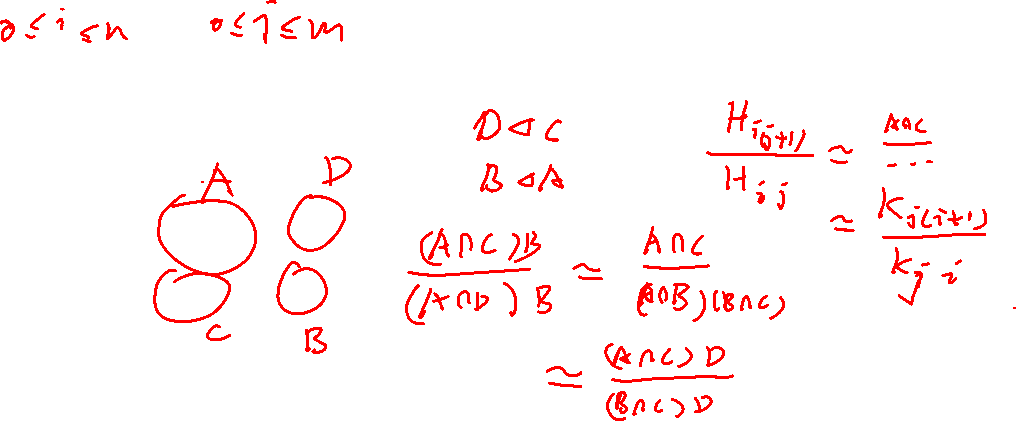 0 ≤ i ≤ n    0 ≤ j ≤ m
D ◁ C
B ◁ A
A    D
C    B
(A∩C)B / (A∩D)B ≃ A∩C / (A∩B)(B∩C)
≃ (A∩C)D / (B∩C)D
H_{i(j+1)} / H_{ij} ≃ A∩C / ...
≃ K_{j(i+1)} / K_{ji}